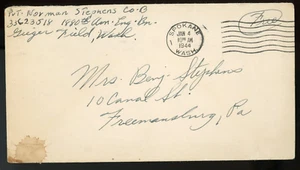 Pvt. Norman Stephens Co-B
1880th Avn. Eng. Bn.
Geiger Field, Wash.
SPOKANE
JAN 4
1944
WASH.
Free
Mrs. Benj Stephens
10 Canal St.
Freemansburg, Pa